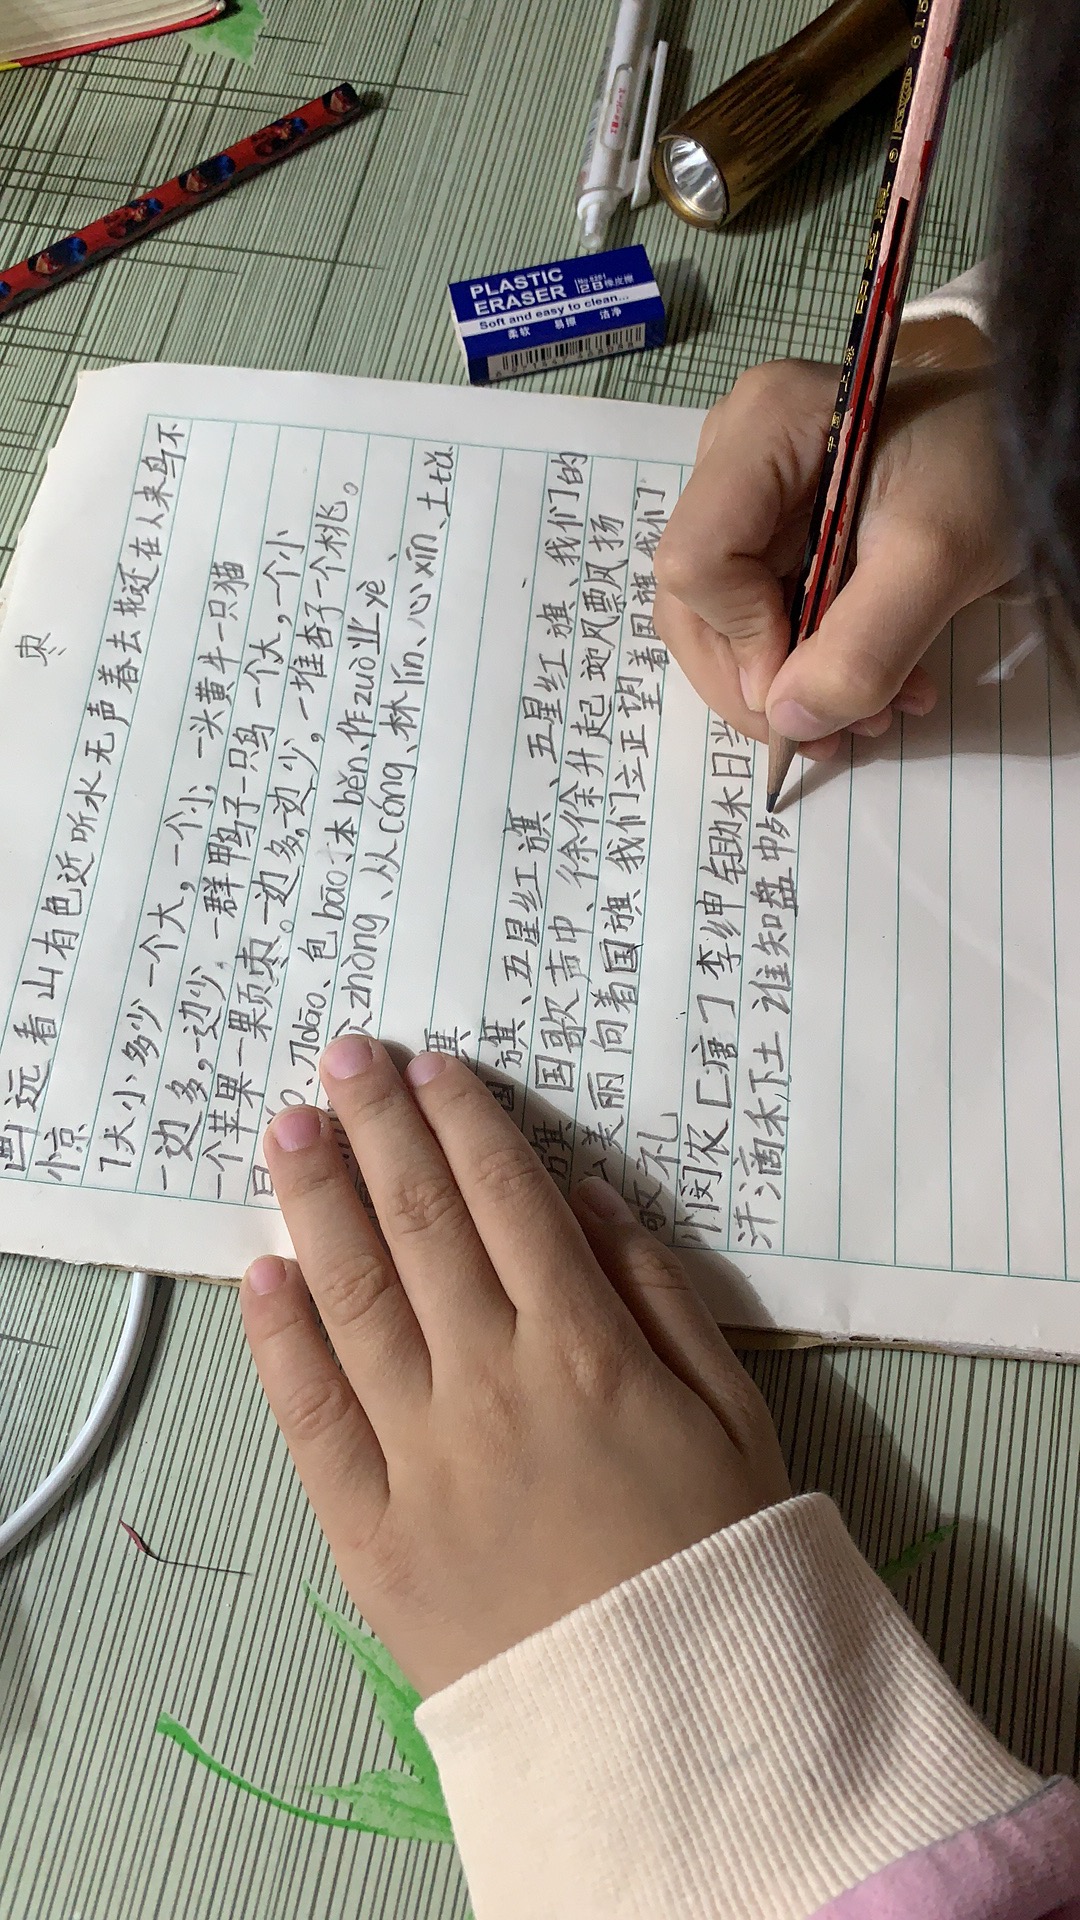 PLASTIC
ERASER
No.E281
2B橡皮擦
Soft and easy to clean...
柔软 易擦 洁净
枣
画远看山有色近听水无声春去花还在人来鸟不
惊
7大小多少一个大，一个小，一头黄牛一只猫
一边多，边少，一群鸭子一只鸟一个大，个小
一个苹果一颗枣。一边多，边少。一堆杏子一个桃。
刀dāo、包bāo、本běn、作zuò业yè、
zhòng、从cóng、林lín、心xīn、土tǔ
旗
国旗、五星红旗、五星红旗、我们的
旗国歌声中、徐徐升起迎风飘风扬
么美丽向着国旗我们立正望着国旗我们
敬礼
小悯农匚唐㇆李绅锄禾日当
汗滴禾下土谁知盘中